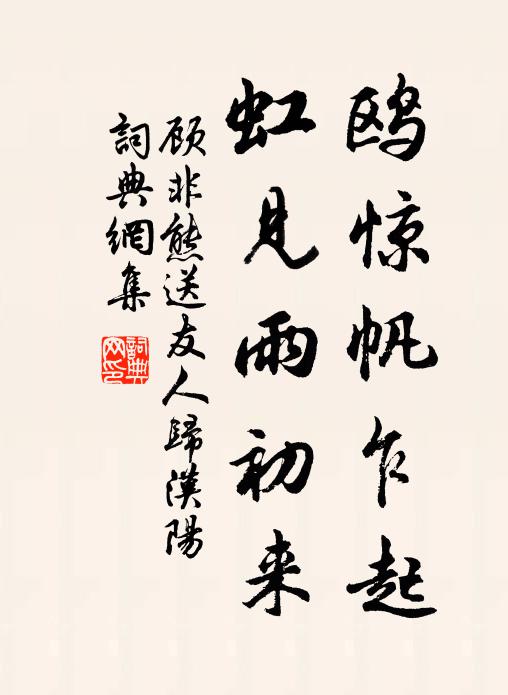 鸥惊帆乍起
虹见雨初来
顾非熊送友人歸漢陽
詞典網集
詞典
网印